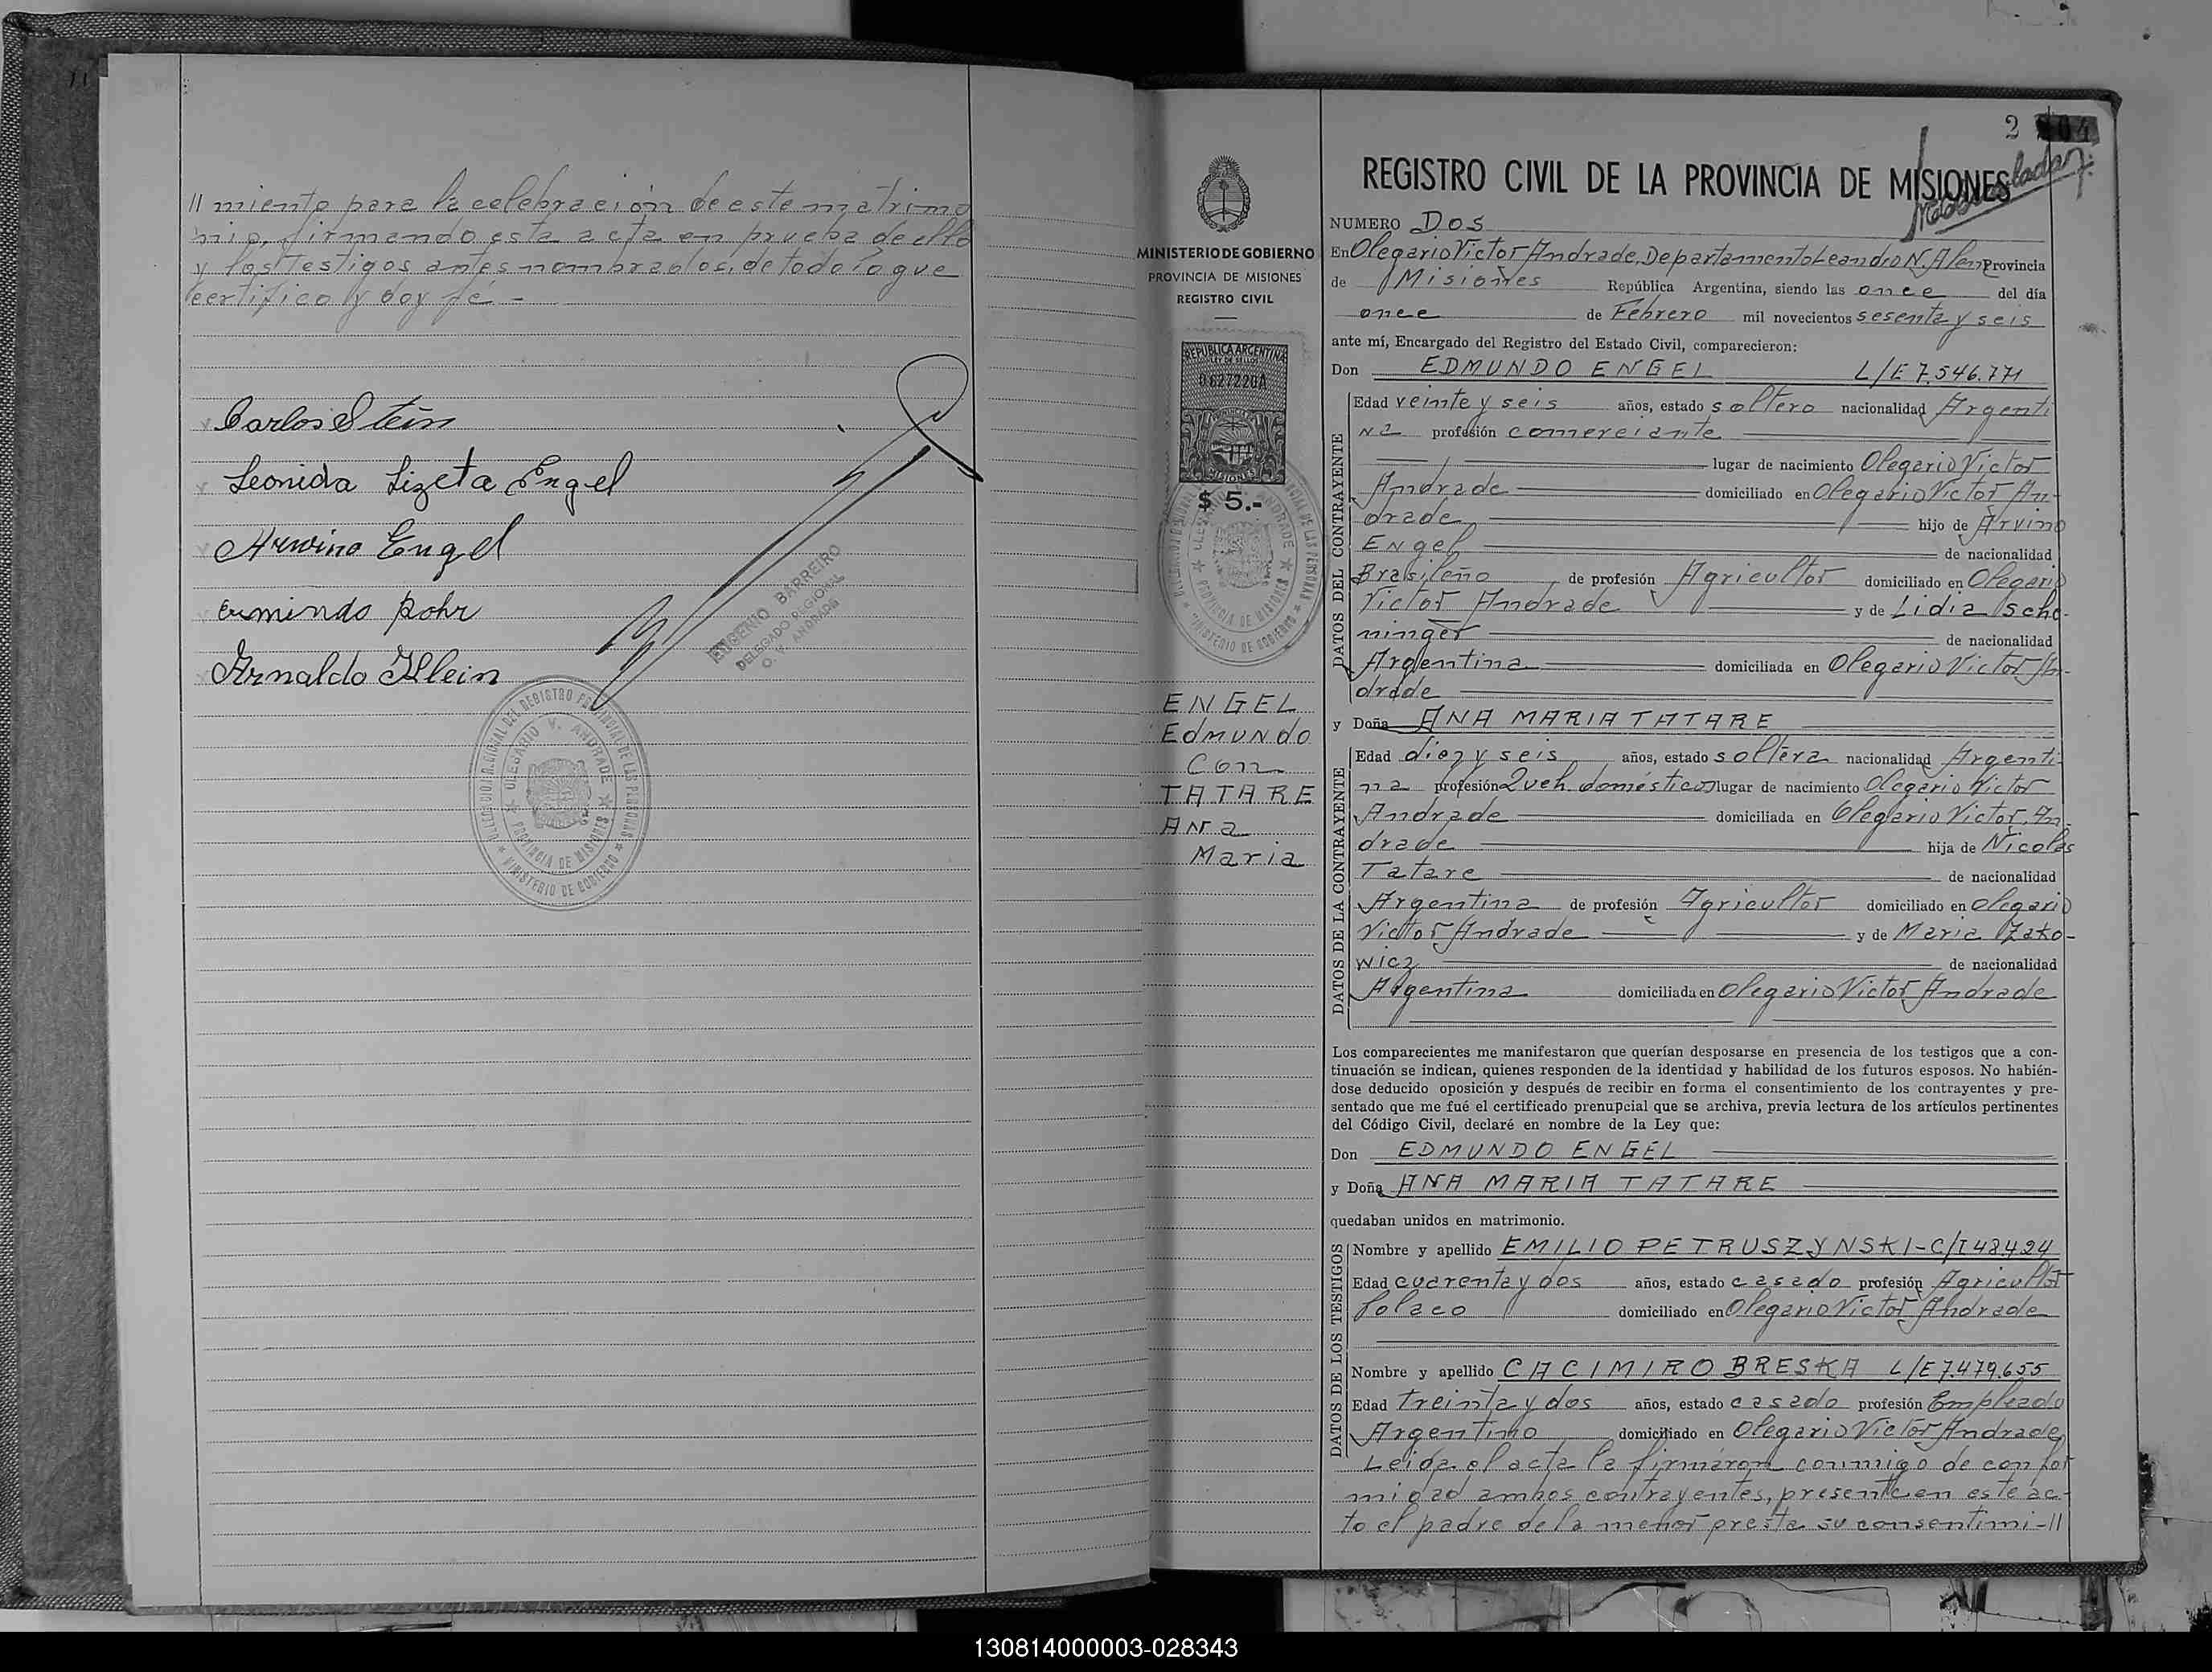 // miento para la celebración de este matrimo
nio, firmando esta acta en prueba de ello
y los Testigos antes nombrados, de todo lo que
certifico y doy fé -
Carlos Stein
Leonida Lizeta Engel
Arwino Engel
Ermindo Rohr
Arnaldo Klein
EUGENIO BARREIRO
DELEGADO REGIONAL
O. V. ANDRADE
OLEGARIO V. ANDRADE
PROVINCIA DE MISIONES
MINISTERIO DE GOBIERNO
MINISTERIO DE GOBIERNO
PROVINCIA DE MISIONES
REGISTRO CIVIL
REPUBLICA ARGENTINA
LEY DE SELLOS
0627220A
MISIONES
$ 5.-
ENGEL
Edmundo
Con
TATARE
Ana
Maria
2
REGISTRO CIVIL DE LA PROVINCIA DE MISIONES
NUMERO Dos
En Olegario Victor Andrade, Departamento Leandro N. Alem Provincia
de Misiones República Argentina, siendo las once del día
once de Febrero mil novecientos sesenta y seis
ante mí, Encargado del Registro del Estado Civil, comparecieron:
Don EDMUNDO ENGEL L/E 7.546.771
DATOS DEL CONTRAYENTE
Edad veinte y seis años, estado soltero nacionalidad Argenti
na profesión comerciante
lugar de nacimiento Olegario Victor
Andrade domiciliado en Olegario Victor An-
drade hijo de Arvino
Engel de nacionalidad
Brasileño de profesión Agricultor domiciliado en Olegario
Victor Andrade y de Lidia Sche-
ninger de nacionalidad
Argentina domiciliada en Olegario Victor An-
drade
y Doña ANA MARIA TATARE
DATOS DE LA CONTRAYENTE
Edad diez y seis años, estado soltera nacionalidad Argenti-
na profesión Queh. domésticos lugar de nacimiento Olegario Victor
Andrade domiciliada en Olegario Victor An-
drade hija de Nicolas
Tatare de nacionalidad
Argentina de profesión Agricultor domiciliado en Olegario
Victor Andrade y de Maria Zako-
wicz de nacionalidad
Argentina domiciliada en Olegario Victor Andrade
Los comparecientes me manifestaron que querían desposarse en presencia de los testigos que a con-
tinuación se indican, quienes responden de la identidad y habilidad de los futuros esposos. No habién-
dose deducido oposición y después de recibir en forma el consentimiento de los contrayentes y pre-
sentado que me fué el certificado prenupcial que se archiva, previa lectura de los artículos pertinentes
del Código Civil, declaré en nombre de la Ley que:
Don EDMUNDO ENGEL
y Doña ANA MARIA TATARE
quedaban unidos en matrimonio.
DATOS DE LOS TESTIGOS
Nombre y apellido EMILIO PETRUSZYNSKI-C/I 48.424
Edad cuarenta y dos años, estado casado profesión Agricultor
Polaco domiciliado en Olegario Victor Andrade
Nombre y apellido CACIMIRO BRESKA L/E 7.479.655
Edad Treinta y dos años, estado casado profesión Empleado
Argentino domiciliado en Olegario Victor Andrade
Leida el acta la firmaron conmigo de confor
midad ambos contrayentes, presente en este ac-
to el padre de la menor presta su consentimi-//
130814000003-028343